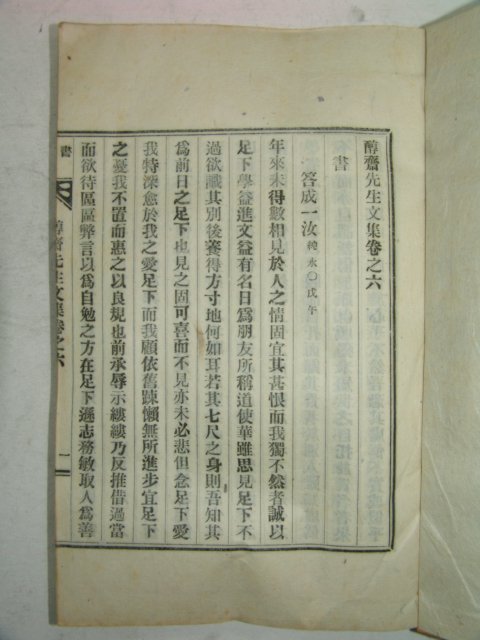 醇齋先生文集卷之六
書
答成一汝 純永○戊午
年來未得數相見於人之情固宜其甚恨而我獨不然者誠以
足下學益進文益有名日爲朋友所稱道使華雖思見足下不
過欲識其別後養得方寸地何如耳若其七尺之身則吾知其
爲前日之足下也見之固可喜而不見亦未必悲但念足下愛
我特深愈於我之愛足下而我顧依舊踈懶無所進步宜足下
之憂我不置而惠之以良規也前承辱示縷縷乃反推借過當
而欲待區區瞽言以爲自勉之方在足下遜志務敏取人爲善
書
醇齋先生文集卷之六
一